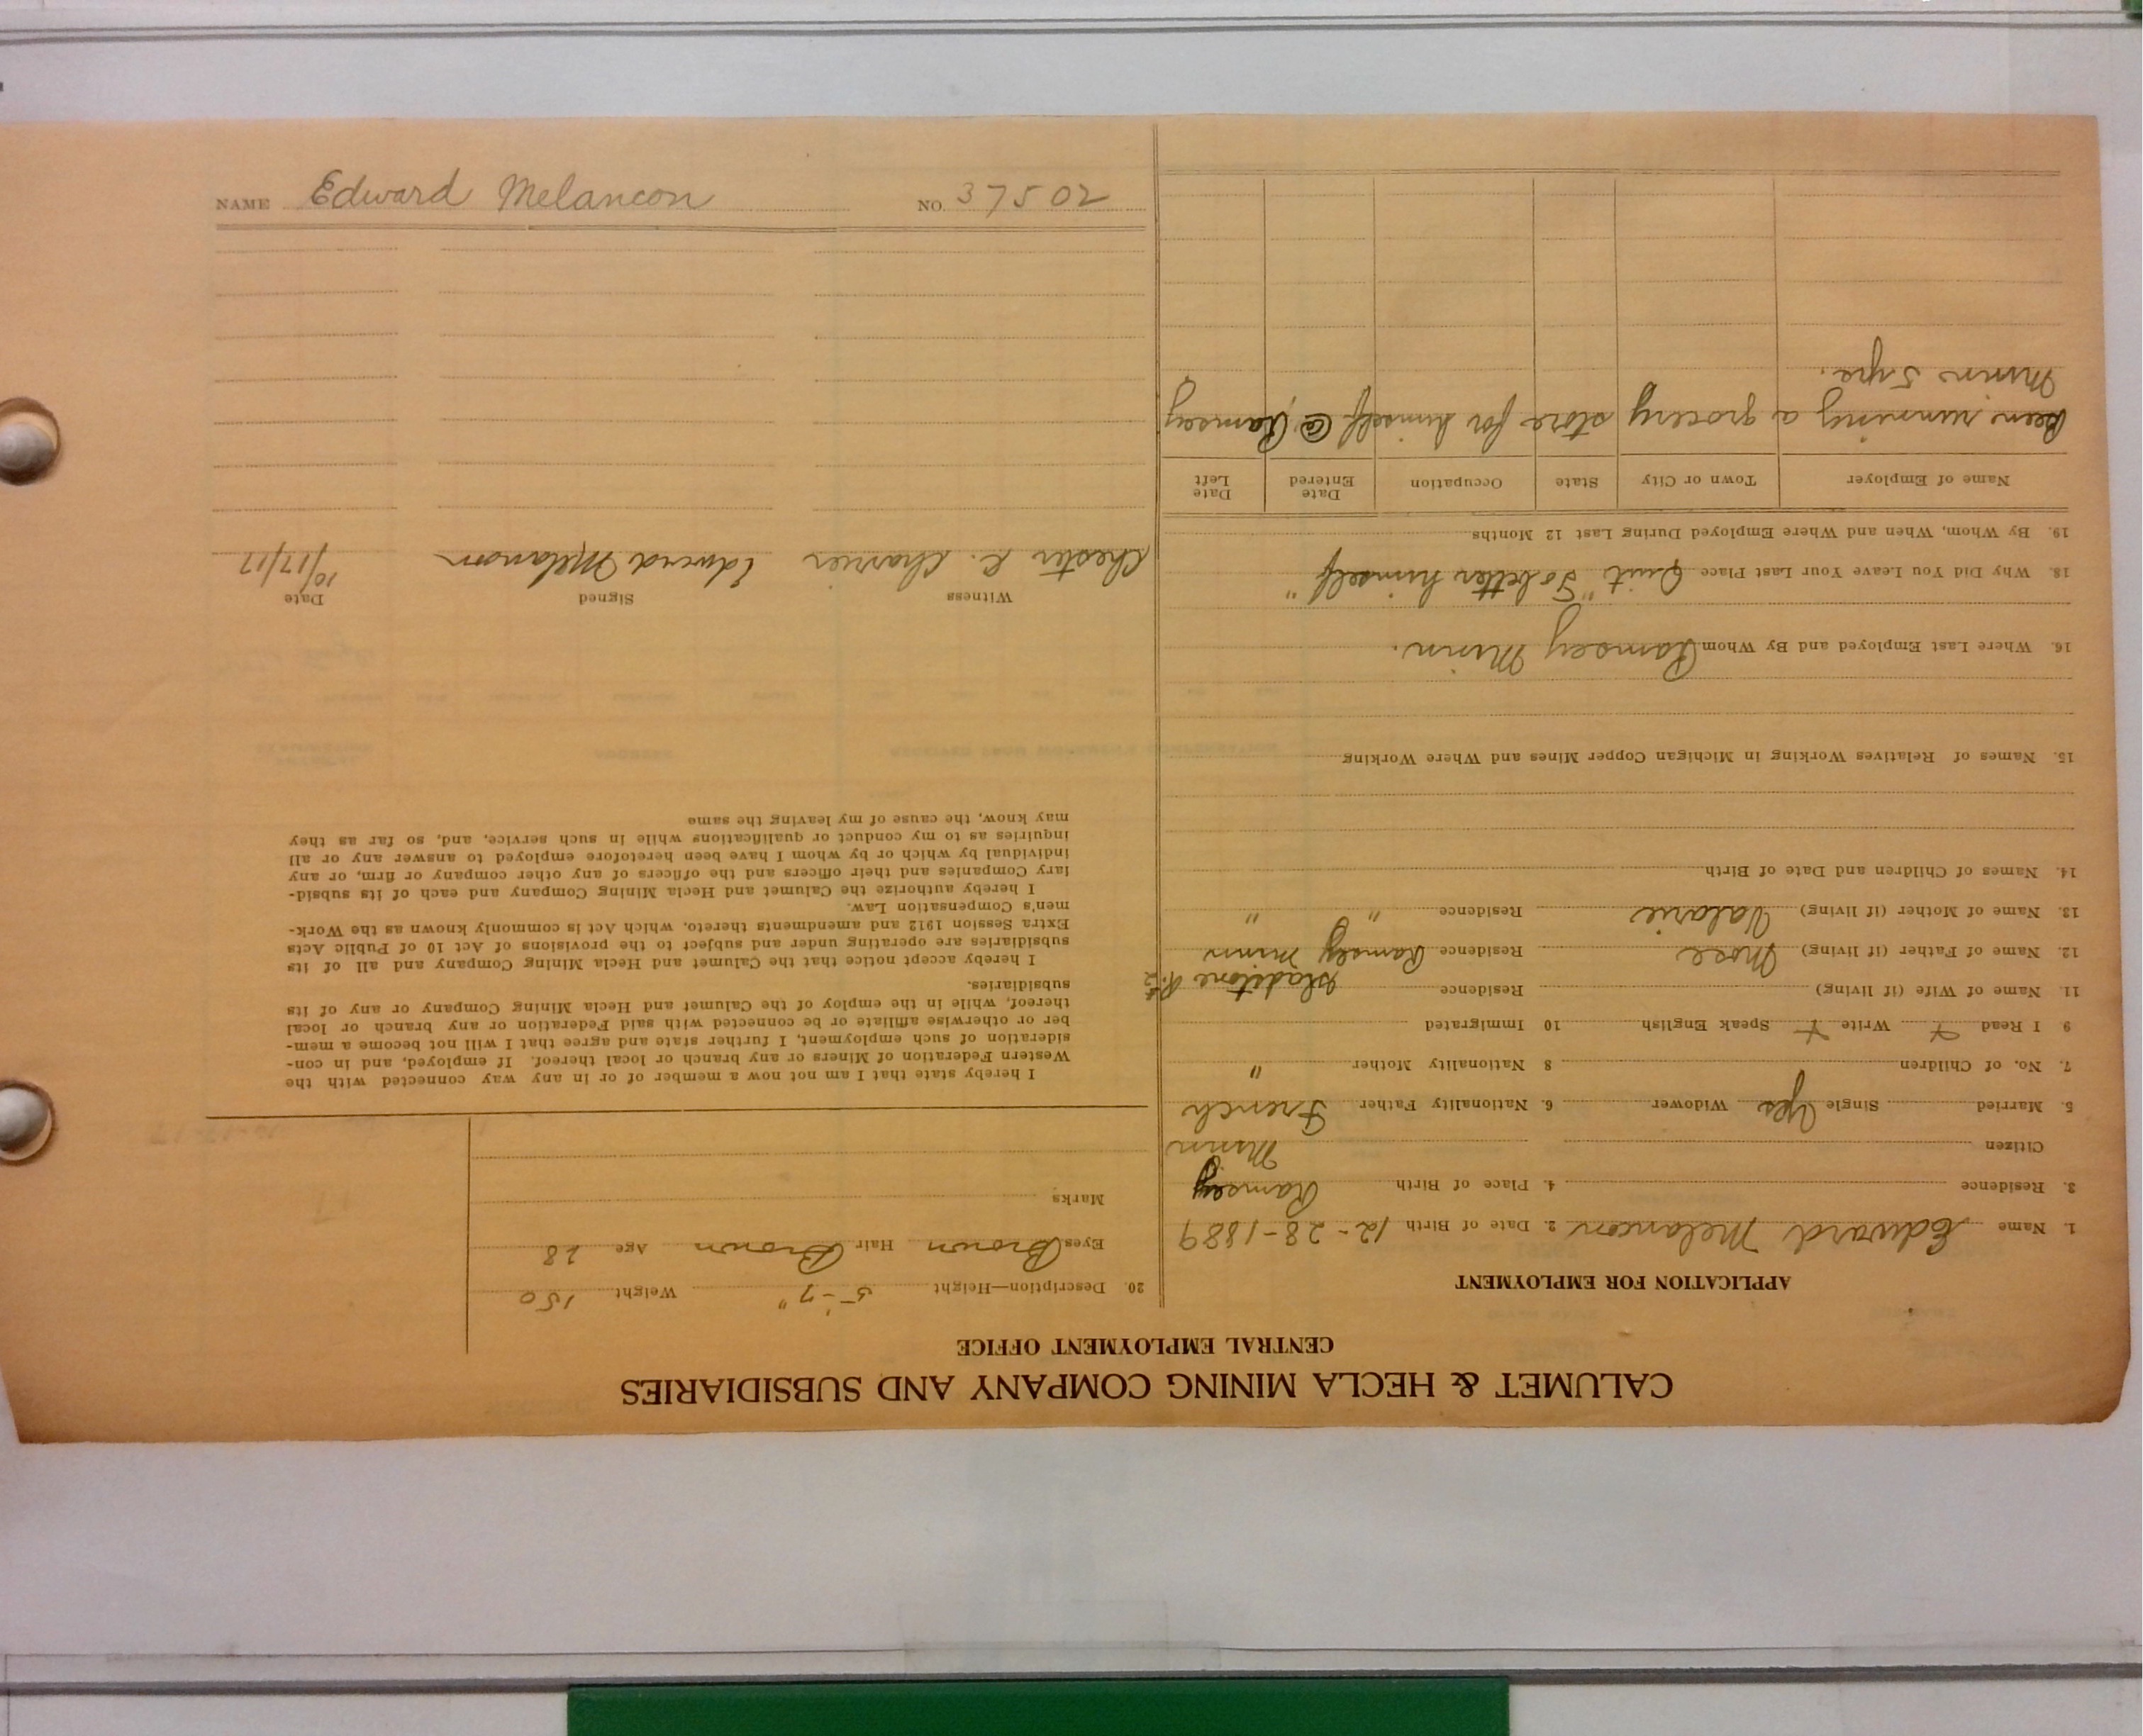 CALUMET & HECLA MINING COMPANY AND SUBSIDIARIES
CENTRAL EMPLOYMENT OFFICE
APPLICATION FOR EMPLOYMENT
1. Name Edward Melancon 2. Date of Birth 12-28-1889
3. Residence 4. Place of Birth Ramsey
Citizen Minn
5. Married Single Yes Widower 6. Nationality Father French
7. No. of Children 8 Nationality Mother "
9. I Read + Write + Speak English 10 Immigrated
11. Name of Wife (if living) Residence
12. Name of Father (if living) Mose Residence Ramsey Minn
13. Name of Mother (if living) Valarie Residence " "
14. Names of Children and Date of Birth
15. Names of Relatives Working in Michigan Copper Mines and Where Working
16. Where Last Employed and By Whom Ramsey Minn.
18. Why Did You Leave Your Last Place Quit "To better himself"
19. By Whom, When and Where Employed During Last 12 Months
Name of Employer Town or City State Occupation Date Entered Date Left
Been running a grocery store for himself @ Ramsey
Minn 5 yrs.
20. Description—Height 5'-7" Weight 150
Eyes Brown Hair Brown Age 28
Marks
I hereby state that I am not now a member of or in any way connected with the
Western Federation of Miners or any branch or local thereof. If employed, and in con-
sideration of such employment, I further state and agree that I will not become a mem-
ber or otherwise affiliate or be connected with said Federation or any branch or local
thereof, while in the employ of the Calumet and Hecla Mining Company or any of its
subsidiaries.
I hereby accept notice that the Calumet and Hecla Mining Company and all of its
subsidiaries are operating under and subject to the provisions of Act 10 of Public Acts
Extra Session 1912 and amendments thereto, which Act is commonly known as the Work-
men's Compensation Law.
I hereby authorize the Calumet and Hecla Mining Company and each of its subsid-
iary Companies and their officers and the officers of any other company or firm, or any
individual by which or by whom I have been heretofore employed to answer any or all
inquiries as to my conduct or qualifications while in such service, and, so far as they
may know, the cause of my leaving the same
Witness Signed Date
Chester C. Charrier Edward Melanson 10/17/17
NAME Edward Melancon NO. 37502